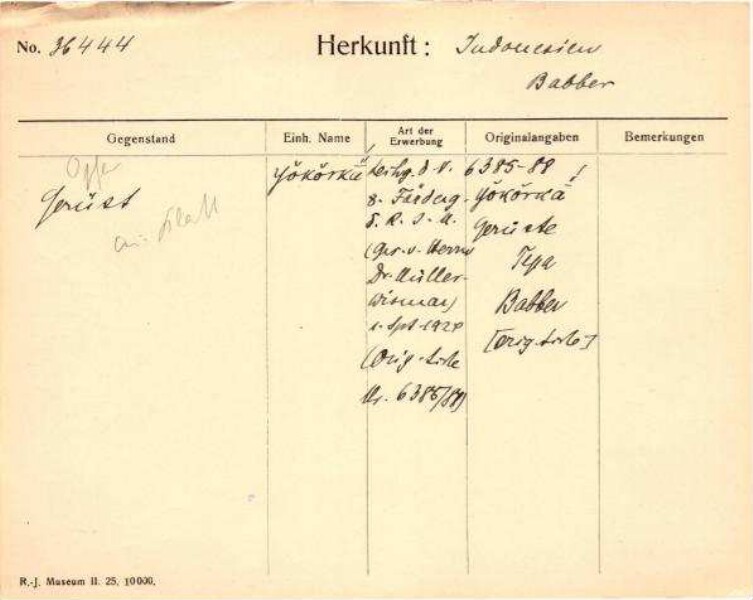 No. 36444 Herkunft: Indonesien
Babber
Gegenstand Einh. Name Art der Erwerbung Originalangaben Bemerkungen
Opfer
Gerüst
Yōkōrkä
Leihg. d. V.
z. Förderg.
d. R. J. M.
(Ges. v. Herrn
Dr. Müller-
Wismar)
1. Spt. 1928
(Orig. Liste
Nr. 6385/88)
6385-88
Yōkōrkä
Gerüste
Tepa
Babber
[Orig. Liste]
R.-J. Museum II. 25. 10000.